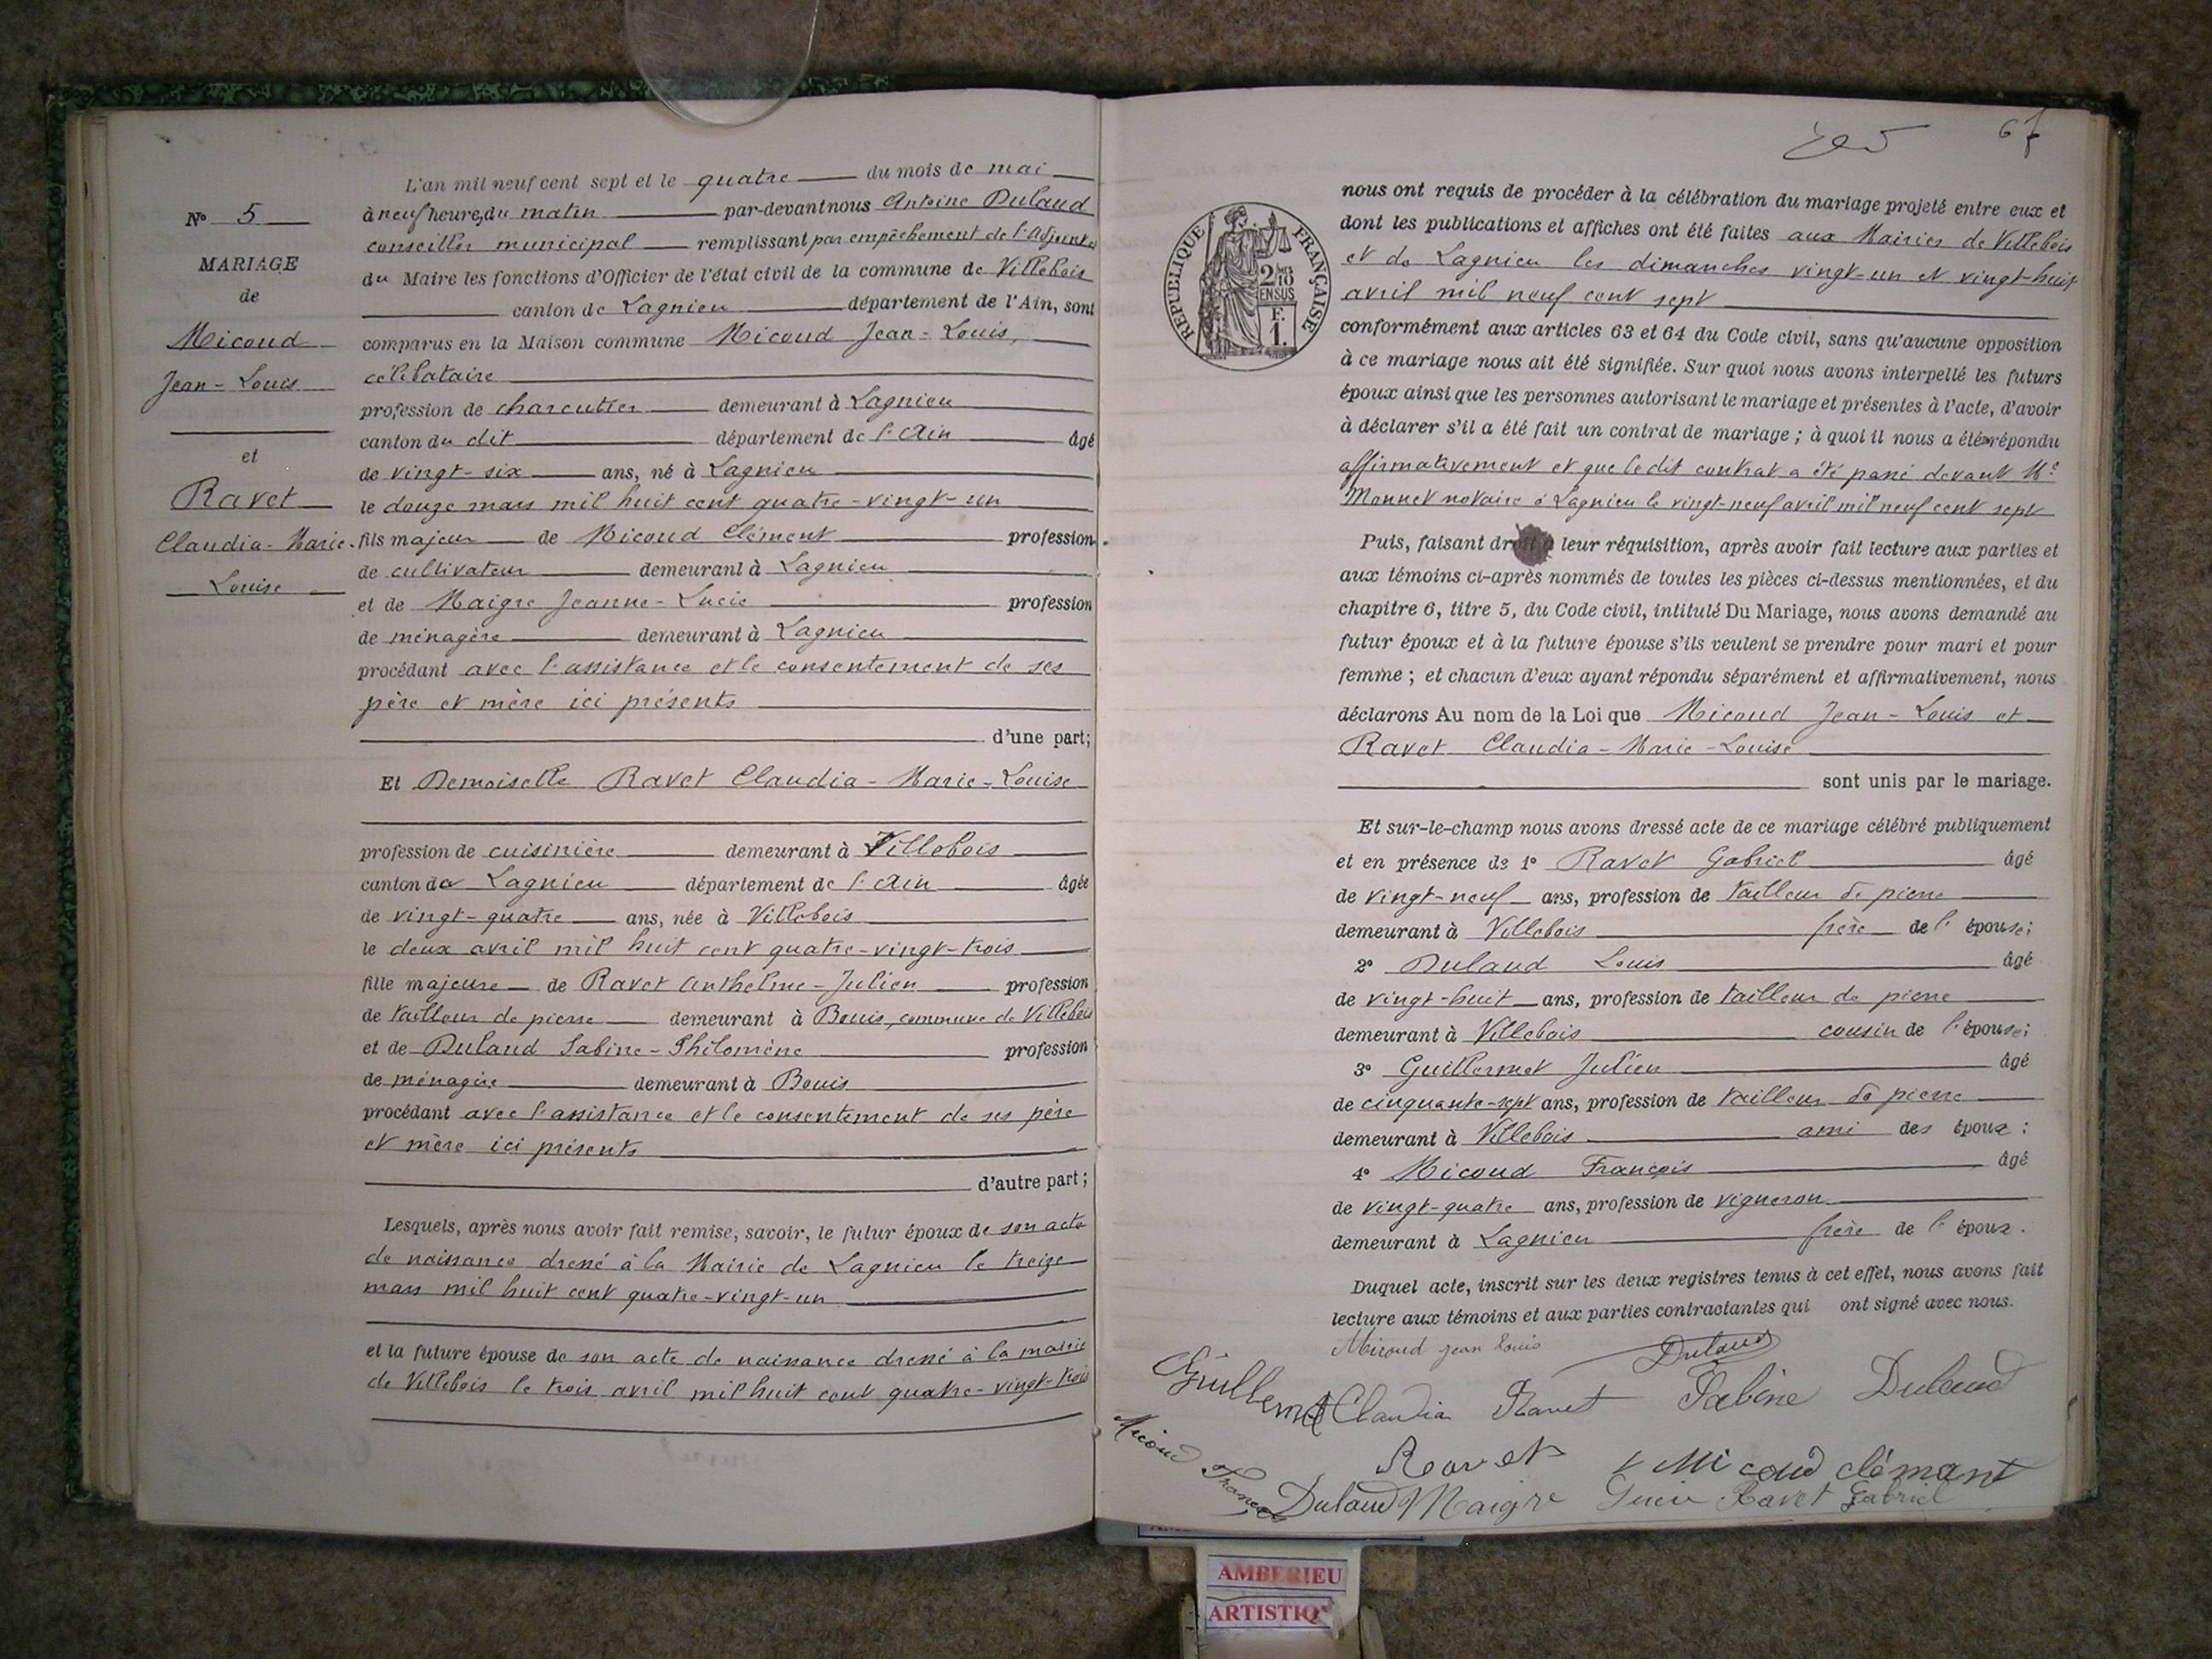 N° 5
MARIAGE
de
Micoud
Jean-Louis
et
Ravet
Claudia-Marie-
Louise
L'an mil neuf cent sept et le quatre du mois de mai
à neuf heures du matin par-devant nous Antoine Dulaud
conseiller municipal remplissant par empêchement de l'Adjoint et
du Maire les fonctions d'Officier de l'état civil de la commune de Villebois
canton de Lagnieu département de l'Ain, sont
comparus en la Maison commune Micoud Jean-Louis,
célibataire
profession de charcutier demeurant à Lagnieu
canton du dit département de l'Ain âgé
de vingt-six ans, né à Lagnieu
le douze mars mil huit cent quatre-vingt-un
fils majeur de Micoud Clément profession
de cultivateur demeurant à Lagnieu
et de Maigre Jeanne-Lucie profession
de ménagère demeurant à Lagnieu
procédant avec l'assistance et le consentement de ses
père et mère ici présents
d'une part;
Et Demoiselle Ravet Claudia-Marie-Louise
profession de cuisinière demeurant à Villebois
canton de Lagnieu département de l'Ain âgée
de vingt-quatre ans, née à Villebois
le deux avril mil huit cent quatre-vingt-trois
fille majeure de Ravet Anthelme-Julien profession
de tailleur de pierre demeurant à Bouis, commune de Villebois
et de Dulaud Sabine-Philomène profession
de ménagère demeurant à Bouis
procédant avec l'assistance et le consentement de ses père
et mère ici présents
d'autre part;
Lesquels, après nous avoir fait remise, savoir, le futur époux de son acte
de naissance dressé à la Mairie de Lagnieu le treize
mars mil huit cent quatre-vingt-un
et la future épouse de son acte de naissance dressé à la mairie
de Villebois le trois avril mil huit cent quatre-vingt-trois
67
RÉPUBLIQUE FRANÇAISE
2/10 EN SUS
F. 1.
nous ont requis de procéder à la célébration du mariage projeté entre eux et
dont les publications et affiches ont été faites aux Mairies de Villebois
et de Lagnieu les dimanches vingt-un et vingt-huit
avril mil neuf cent sept
conformément aux articles 63 et 64 du Code civil, sans qu'aucune opposition
à ce mariage nous ait été signifiée. Sur quoi nous avons interpellé les futurs
époux ainsi que les personnes autorisant le mariage et présentes à l'acte, d'avoir
à déclarer s'il a été fait un contrat de mariage ; à quoi il nous a été répondu
affirmativement et que le dit contrat a été passé devant Me
Monnet notaire à Lagnieu le vingt-neuf avril mil neuf cent sept
Puis, faisant droit à leur réquisition, après avoir fait lecture aux parties et
aux témoins ci-après nommés de toutes les pièces ci-dessus mentionnées, et du
chapitre 6, titre 5, du Code civil, intitulé Du Mariage, nous avons demandé au
futur époux et à la future épouse s'ils veulent se prendre pour mari et pour
femme ; et chacun d'eux ayant répondu séparément et affirmativement, nous
déclarons Au nom de la Loi que Micoud Jean-Louis et
Ravet Claudia-Marie-Louise
sont unis par le mariage.
Et sur-le-champ nous avons dressé acte de ce mariage célébré publiquement
et en présence de 1° Ravet Gabriel âgé
de vingt-neuf ans, profession de tailleur de pierre
demeurant à Villebois frère de l'épouse;
2° Dulaud Louis âgé
de vingt-huit ans, profession de tailleur de pierre
demeurant à Villebois cousin de l'épouse;
3° Guillermet Julien âgé
de cinquante-sept ans, profession de tailleur de pierre
demeurant à Villebois ami des époux :
4° Micoud François âgé
de vingt-quatre ans, profession de vigneron
demeurant à Lagnieu frère de l'époux.
Duquel acte, inscrit sur les deux registres tenus à cet effet, nous avons fait
lecture aux témoins et aux parties contractantes qui ont signé avec nous.
Micoud jean louis Dulaud
Claudia Ravet Sabine Dulaud
Micoud
Ravet Micoud clémant
Dulaud Maigre Lucie Ravet Gabriel
AMBERIEU
ARTISTIQ